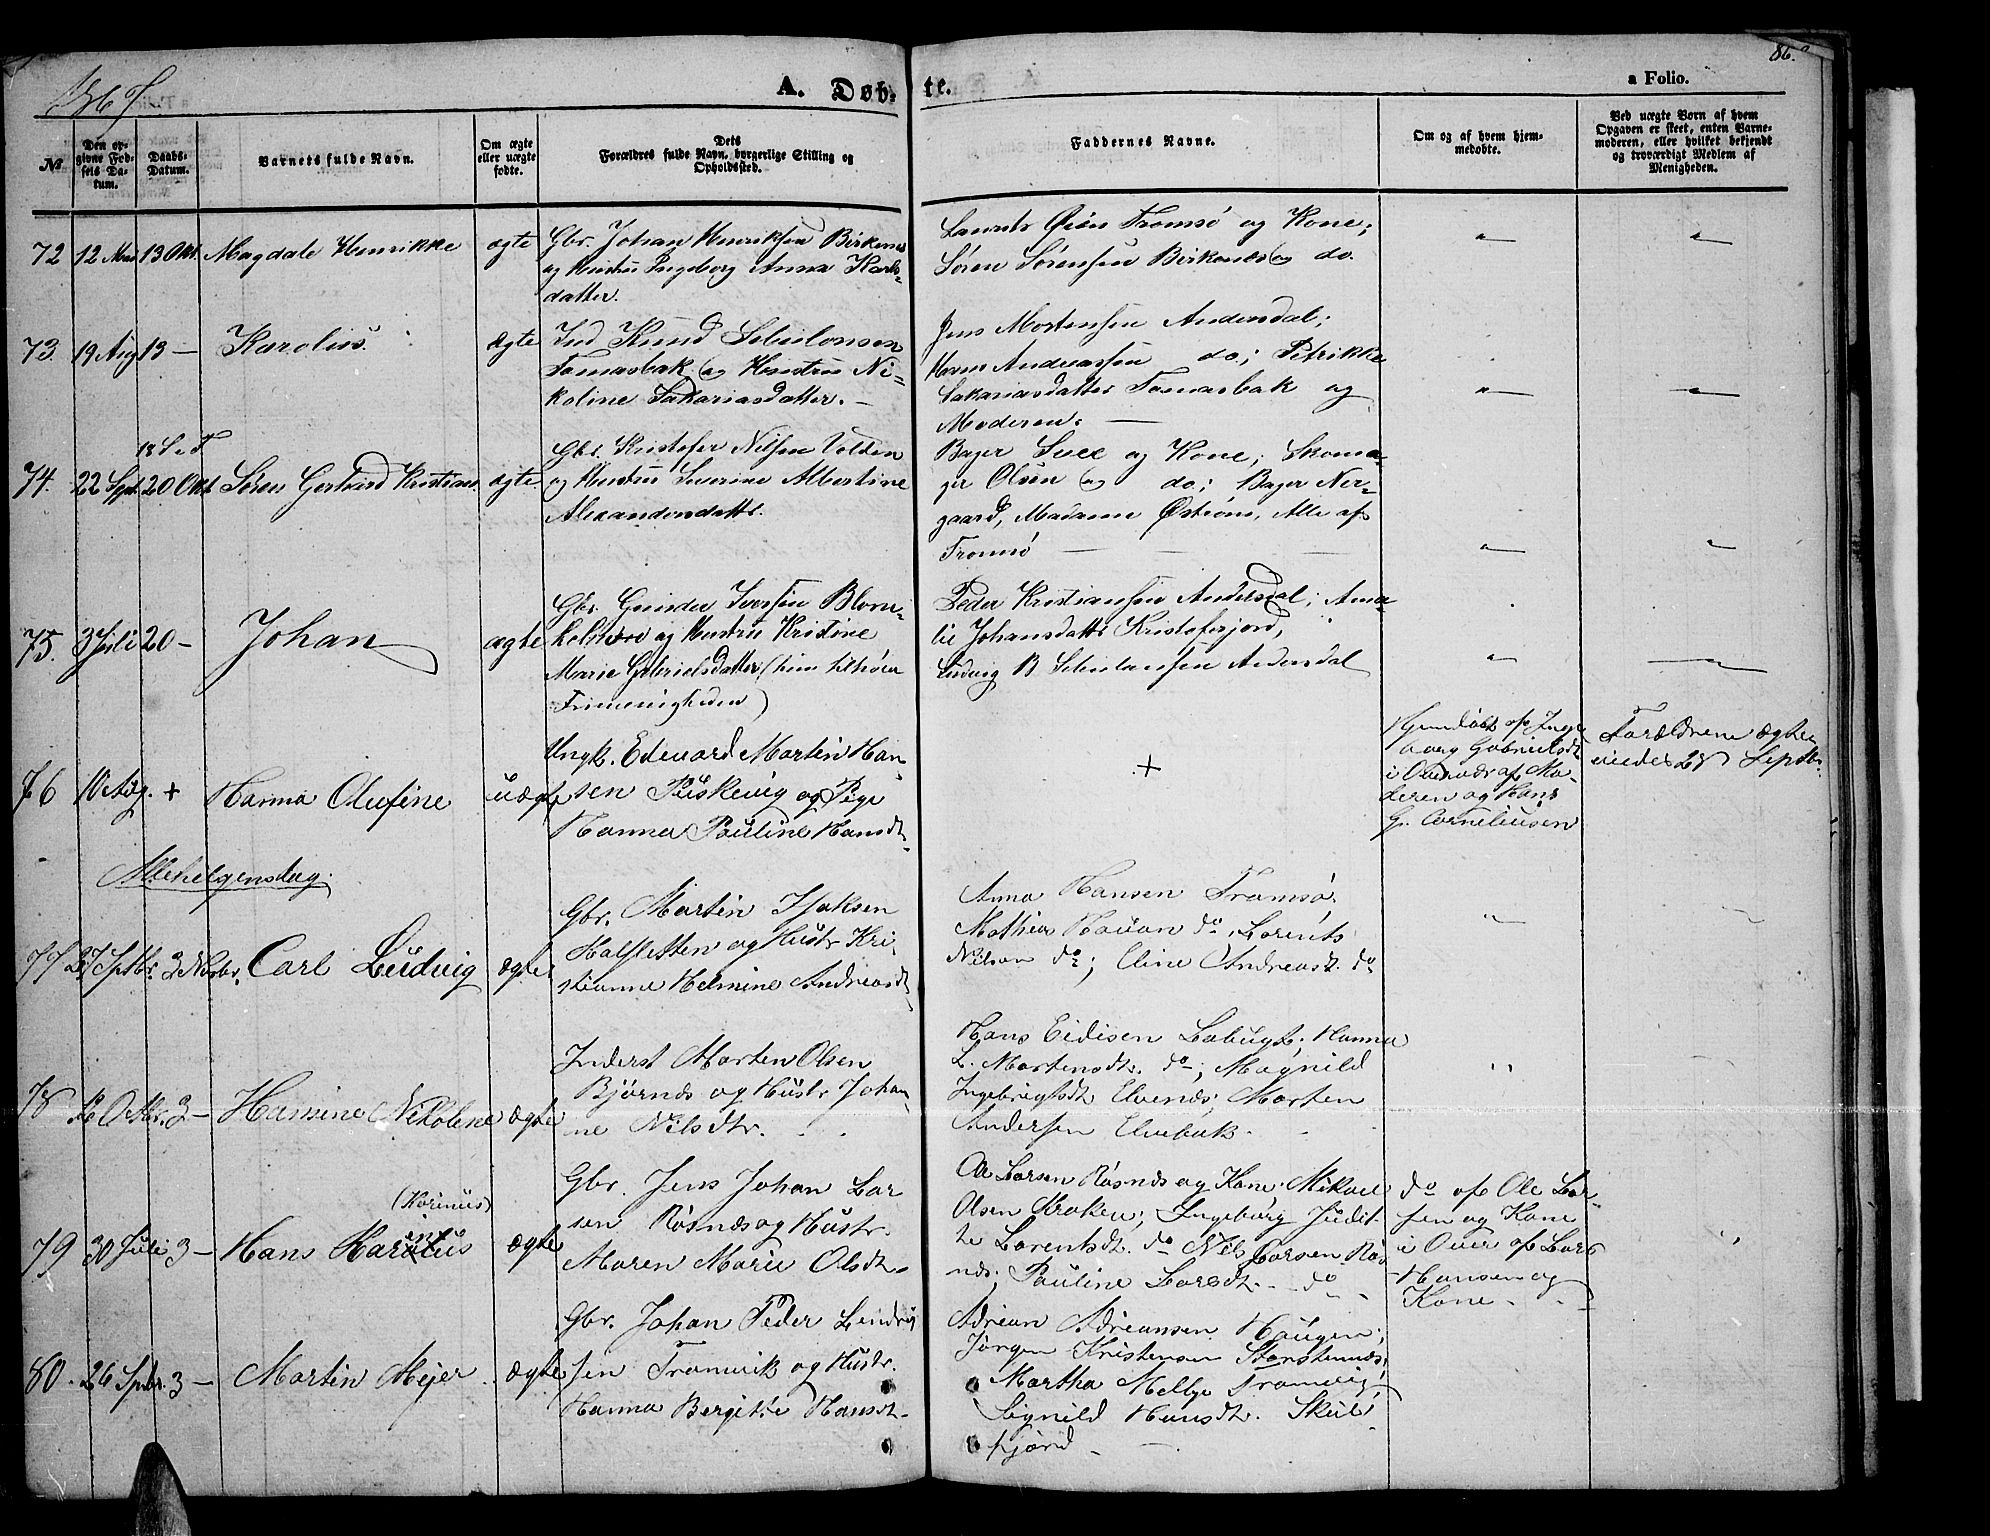 1867
A. Døbte.
a Folio.
86.
№
Den opgivne Fødsels Datum.
Daabs-Datum.
Barnets fulde Navn.
Om ægte eller uægte fødte.
Dets Forældres fulde Navn, borgerlige Stilling og Opholdssted.
Faddernes Navne.
Om og af hvem hjemmedøbte.
Ved uægte Børn af hvem Opgaven er skeet, enten Barnemoderen, eller hvilket bekjendt og troværdigt Medlem af Menigheden.
72 13 Okt. Magdale Henrikke ægte
Gbr. Johan Henriksen Birkenes
og Hustru Ingeborg Anna Karls-
datter.
Tromsø og Kone;
Søren Sørensen Birkenes og do.
73. 19 Aug 13 — Karolius. ægte
Ind Knud
Tomasbak og Hustru Ni-
koline Sakariasdatter. —
Jens Mortensen Andersdal;
Andreassen do.; Petrikke
Sakariasdatter Tomasbak og
Moderen. —
74. 22 Sept. 20 Okt. Søren Gerhard Kristian. ægte
18 S. e. T.
Gbr. Kristofer Nilsen Volden
og Hustru Severine Albertine
Alexandersdatter.
Bager og Kone; Skoma-
ger Olsen og do; Bager Ner-
gaard, Madame Alle af
Tromsø
75. 3 Juli 20 — Johan ægte
Gbr. Iversen Blom-
og Hustru Kristine
Marie Gabrielsdatter (hun tilhører
Frimenigheden)
Peder Kristiansen Andersdal; Ama-
lie Johansdatter Kristoferjord,
Ludvig B Andersdal
76 10 Aug. + Hanna Olufine uægte
Ungk. Edevard Martin Han-
sen og Pige
Hanna Pauline Hansdt.
+
Hjemdøbt af Inge-
borg Gabrielsdt
i Overvær af Mo-
deren og Hans
G. Corneliusen
Forældrene ægte-
viedes 28 Septbr.
Allehelgensdag.
77 27 Sptbr. 3 Novbr. Carl Ludvig ægte
Gbr. Martin Isaksen
Kalfsletten og Hustr. Kri-
stianne Helmine Andreasdt.
Anna Hansen Tromsø.
Mathias Hauan do, Lorents
Nilsen do; Eline Andreasdt. do
78 Oktbr. 3 — Hansine Nikoline ægte
Inderst Morten Olsen
Bjørnes og Hustr. Johan-
ne Nilsdtr.
Hans Eidisen Labugt; Hanna
L. Mortensdtr. do; Magnild
Ingebrigtsdt Elvenes; Morten
Andersen Elvebak.
79 30 Juli 3 — Hans Karinus ægte
(Korinus)
Gbr. Jens Johan Lar-
sen Røsnes og Hustr.
Maren Marie Olsdt.
Ole Larsen Røsnes og Kone; Mikael
Olsen Kroken; Ingeborg Judit-
te Lorentsdt. do Nils Larsen Røs-
nes; Pauline Larsdt. do
do af Ole Lar-
sen og Kone
i Over. af Lars
Hansen og
Kone.
80. 26 Sptbr. 3 — Martin Mejer. ægte
Gbr. Johan Peder Lendrig-
sen Tromvik og Hustr.
Hanna Bergitte Hansdt.
Adrian Adriansen Haugen;
Jørgen Kristensen Storstennes;
Martha Melbye Tromvig;
Signild Hansdt. Skul-
fjord